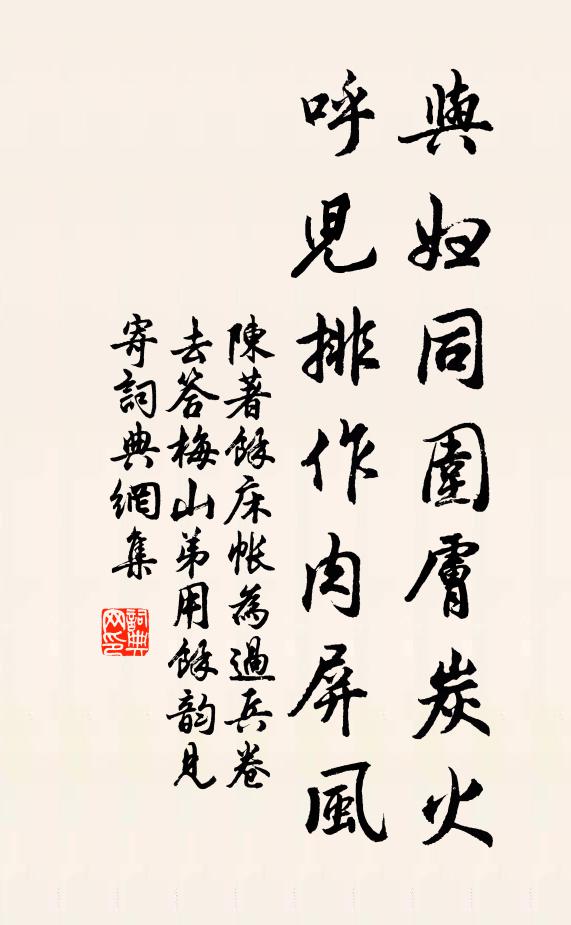 與婦同圍膚炭火
呼兒排作肉屏風
陳著餘床帳為過兵卷
去答梅山弟用餘韵見
寄詞典網集
詞典網印